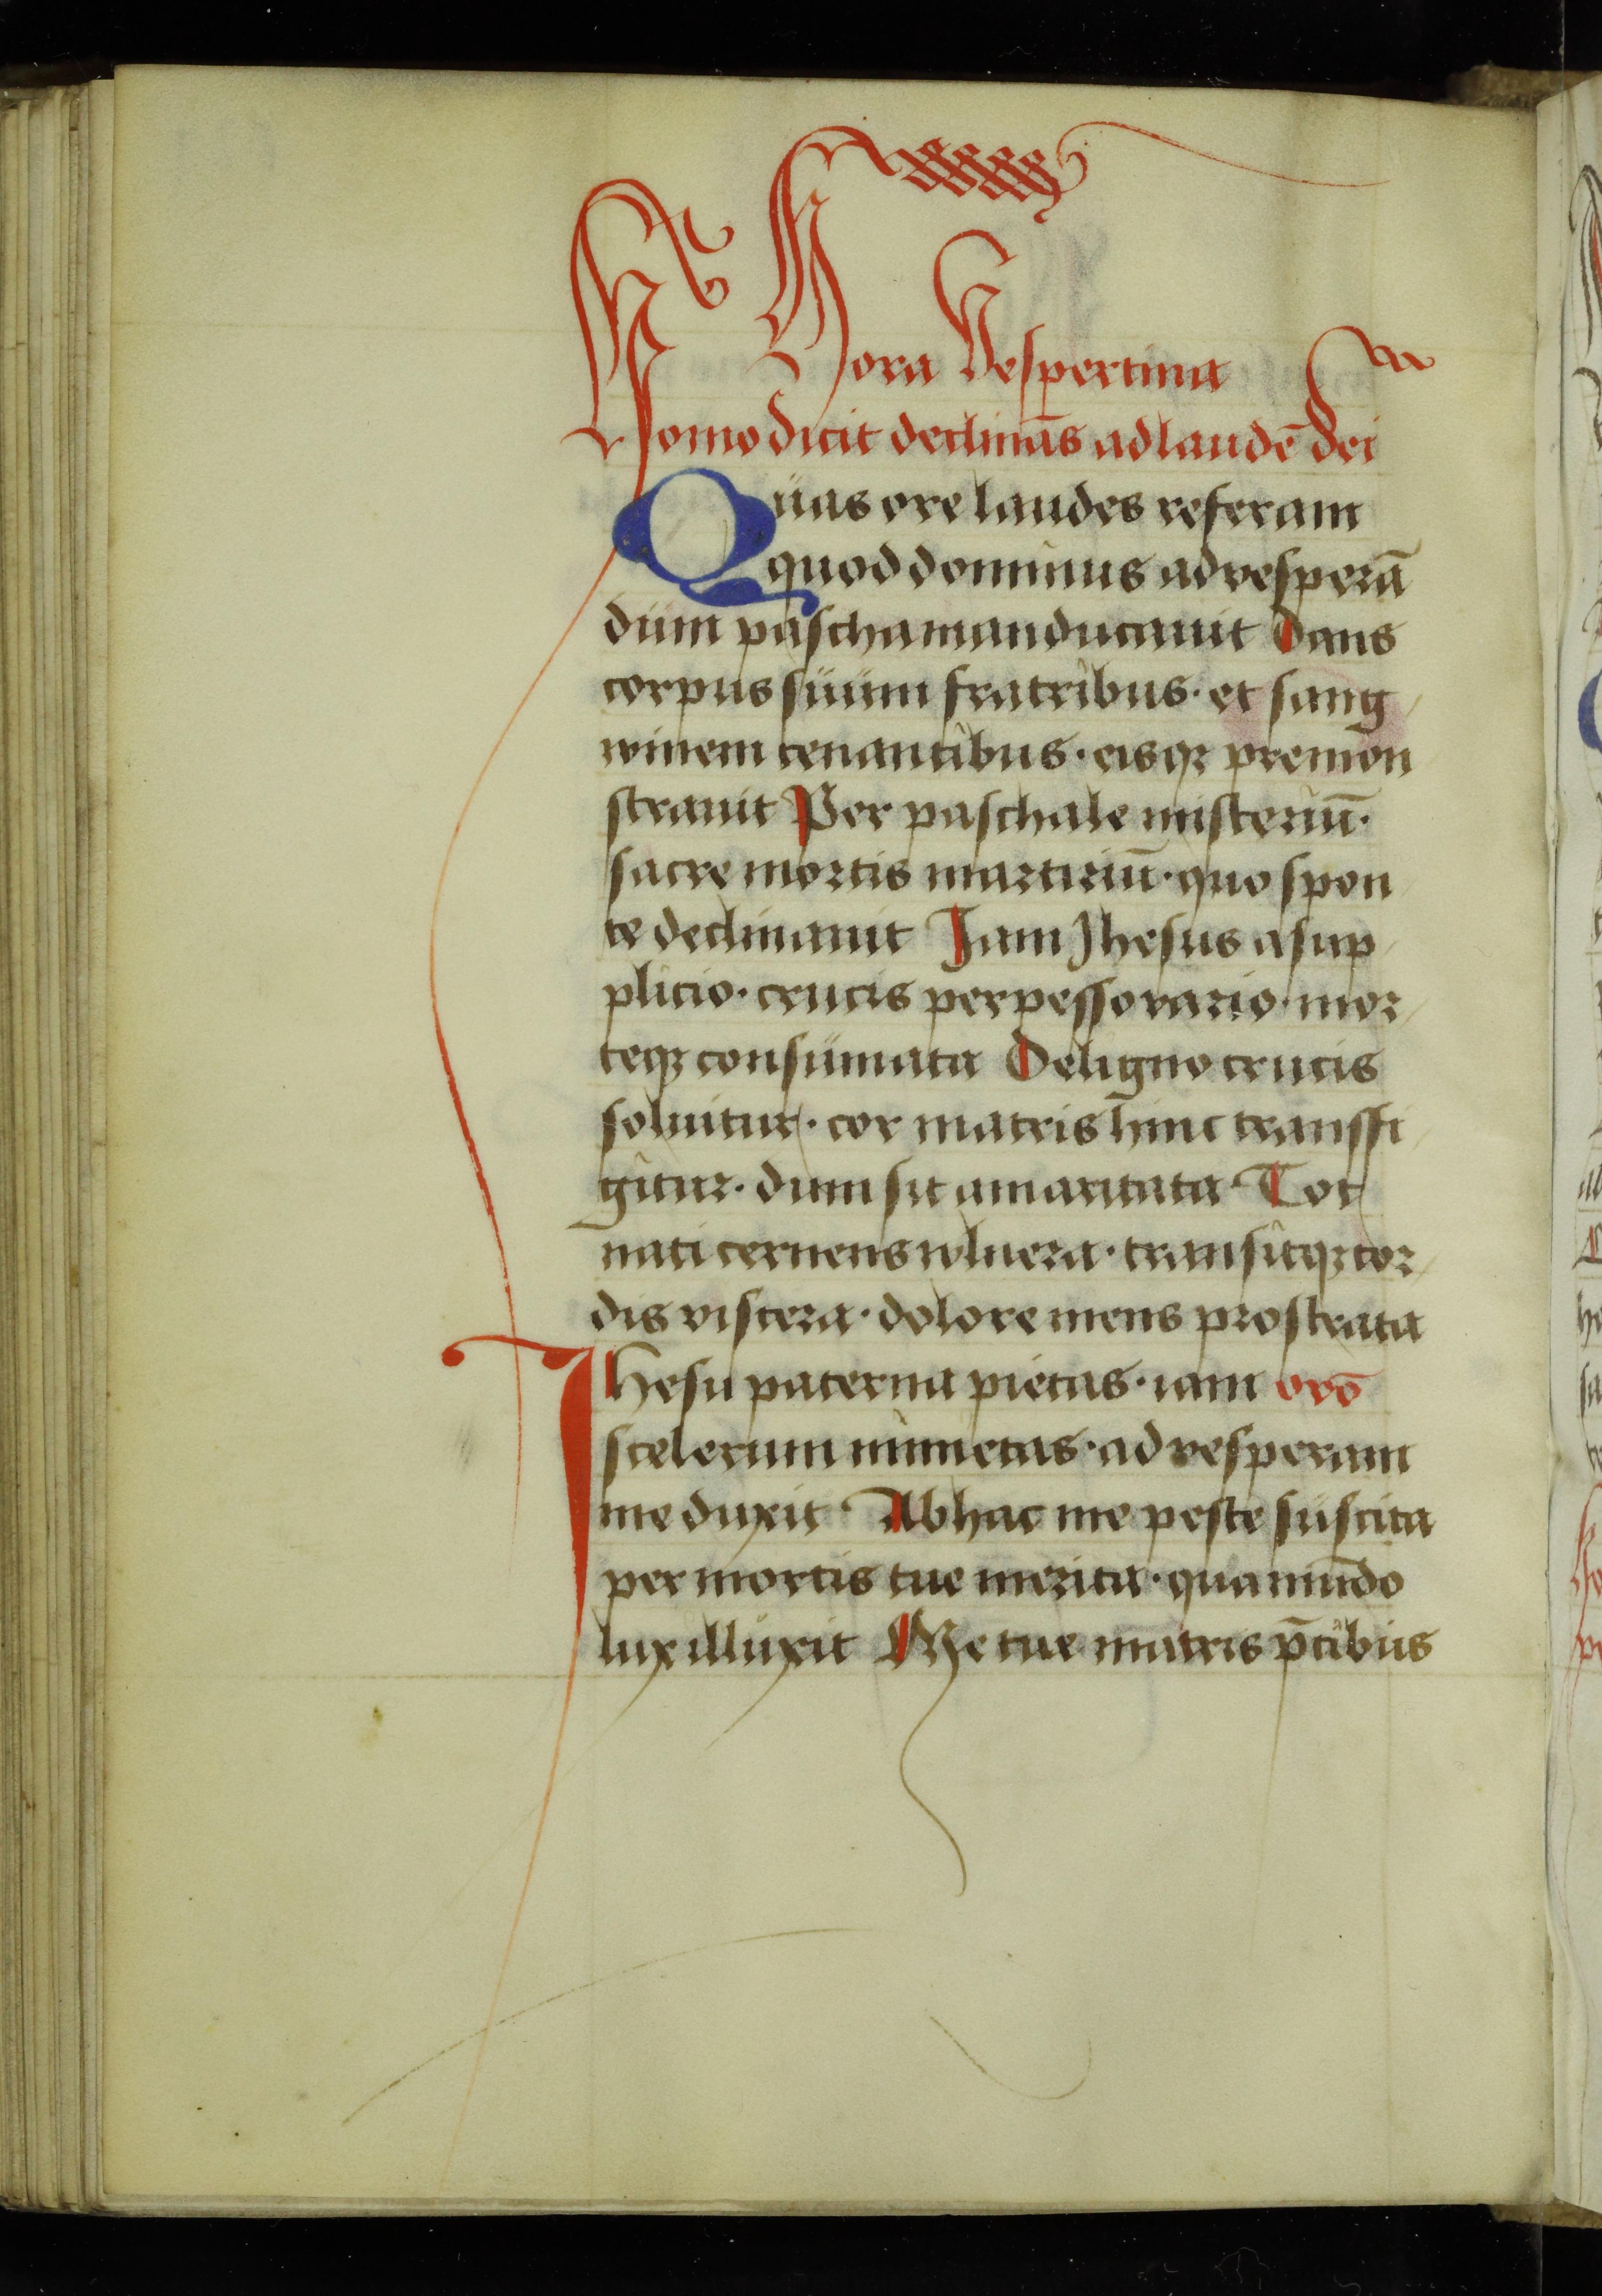 Hora Vespertina
Homo dicit declinās ad laudē dei
Quas ore laudes referam
quod dominus ad vesperā
dum pascha manducauit Dans
corpus suum fratribus · et sang
winem cenantibus · eisqz premon
strauit Per paschale misteriū ·
sacre mortis martiriū · quo spon
te declinauit Iam Jhesus a sup
plicio · crucis perpesso vario · mor
teqz consummata De ligno crucis
soluitur · cor matris hinc transfi
gitur · dum sit amaritata · Tot
nati cernens wlnera · transitqz cor
dis viscera · dolore mens prostrata
Ihesu paterna pietas · iam orō
scelerum nimietas · ad vesperam
me duxit · Ab hac me peste suscita
per mortis tue merita · qua mūdo
lux illuxit Me tue matris p̄cibus